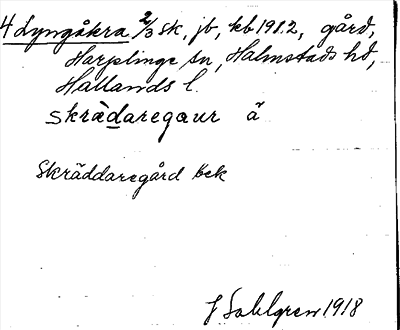 4 Lyngåkra 2/3 sk, jb, kb 1912, gård,
Harplinge sn, Halmstads hd,
Hallands l.
skrädaregaur ä
Skräddaregård bek
J Sahlgren 1918